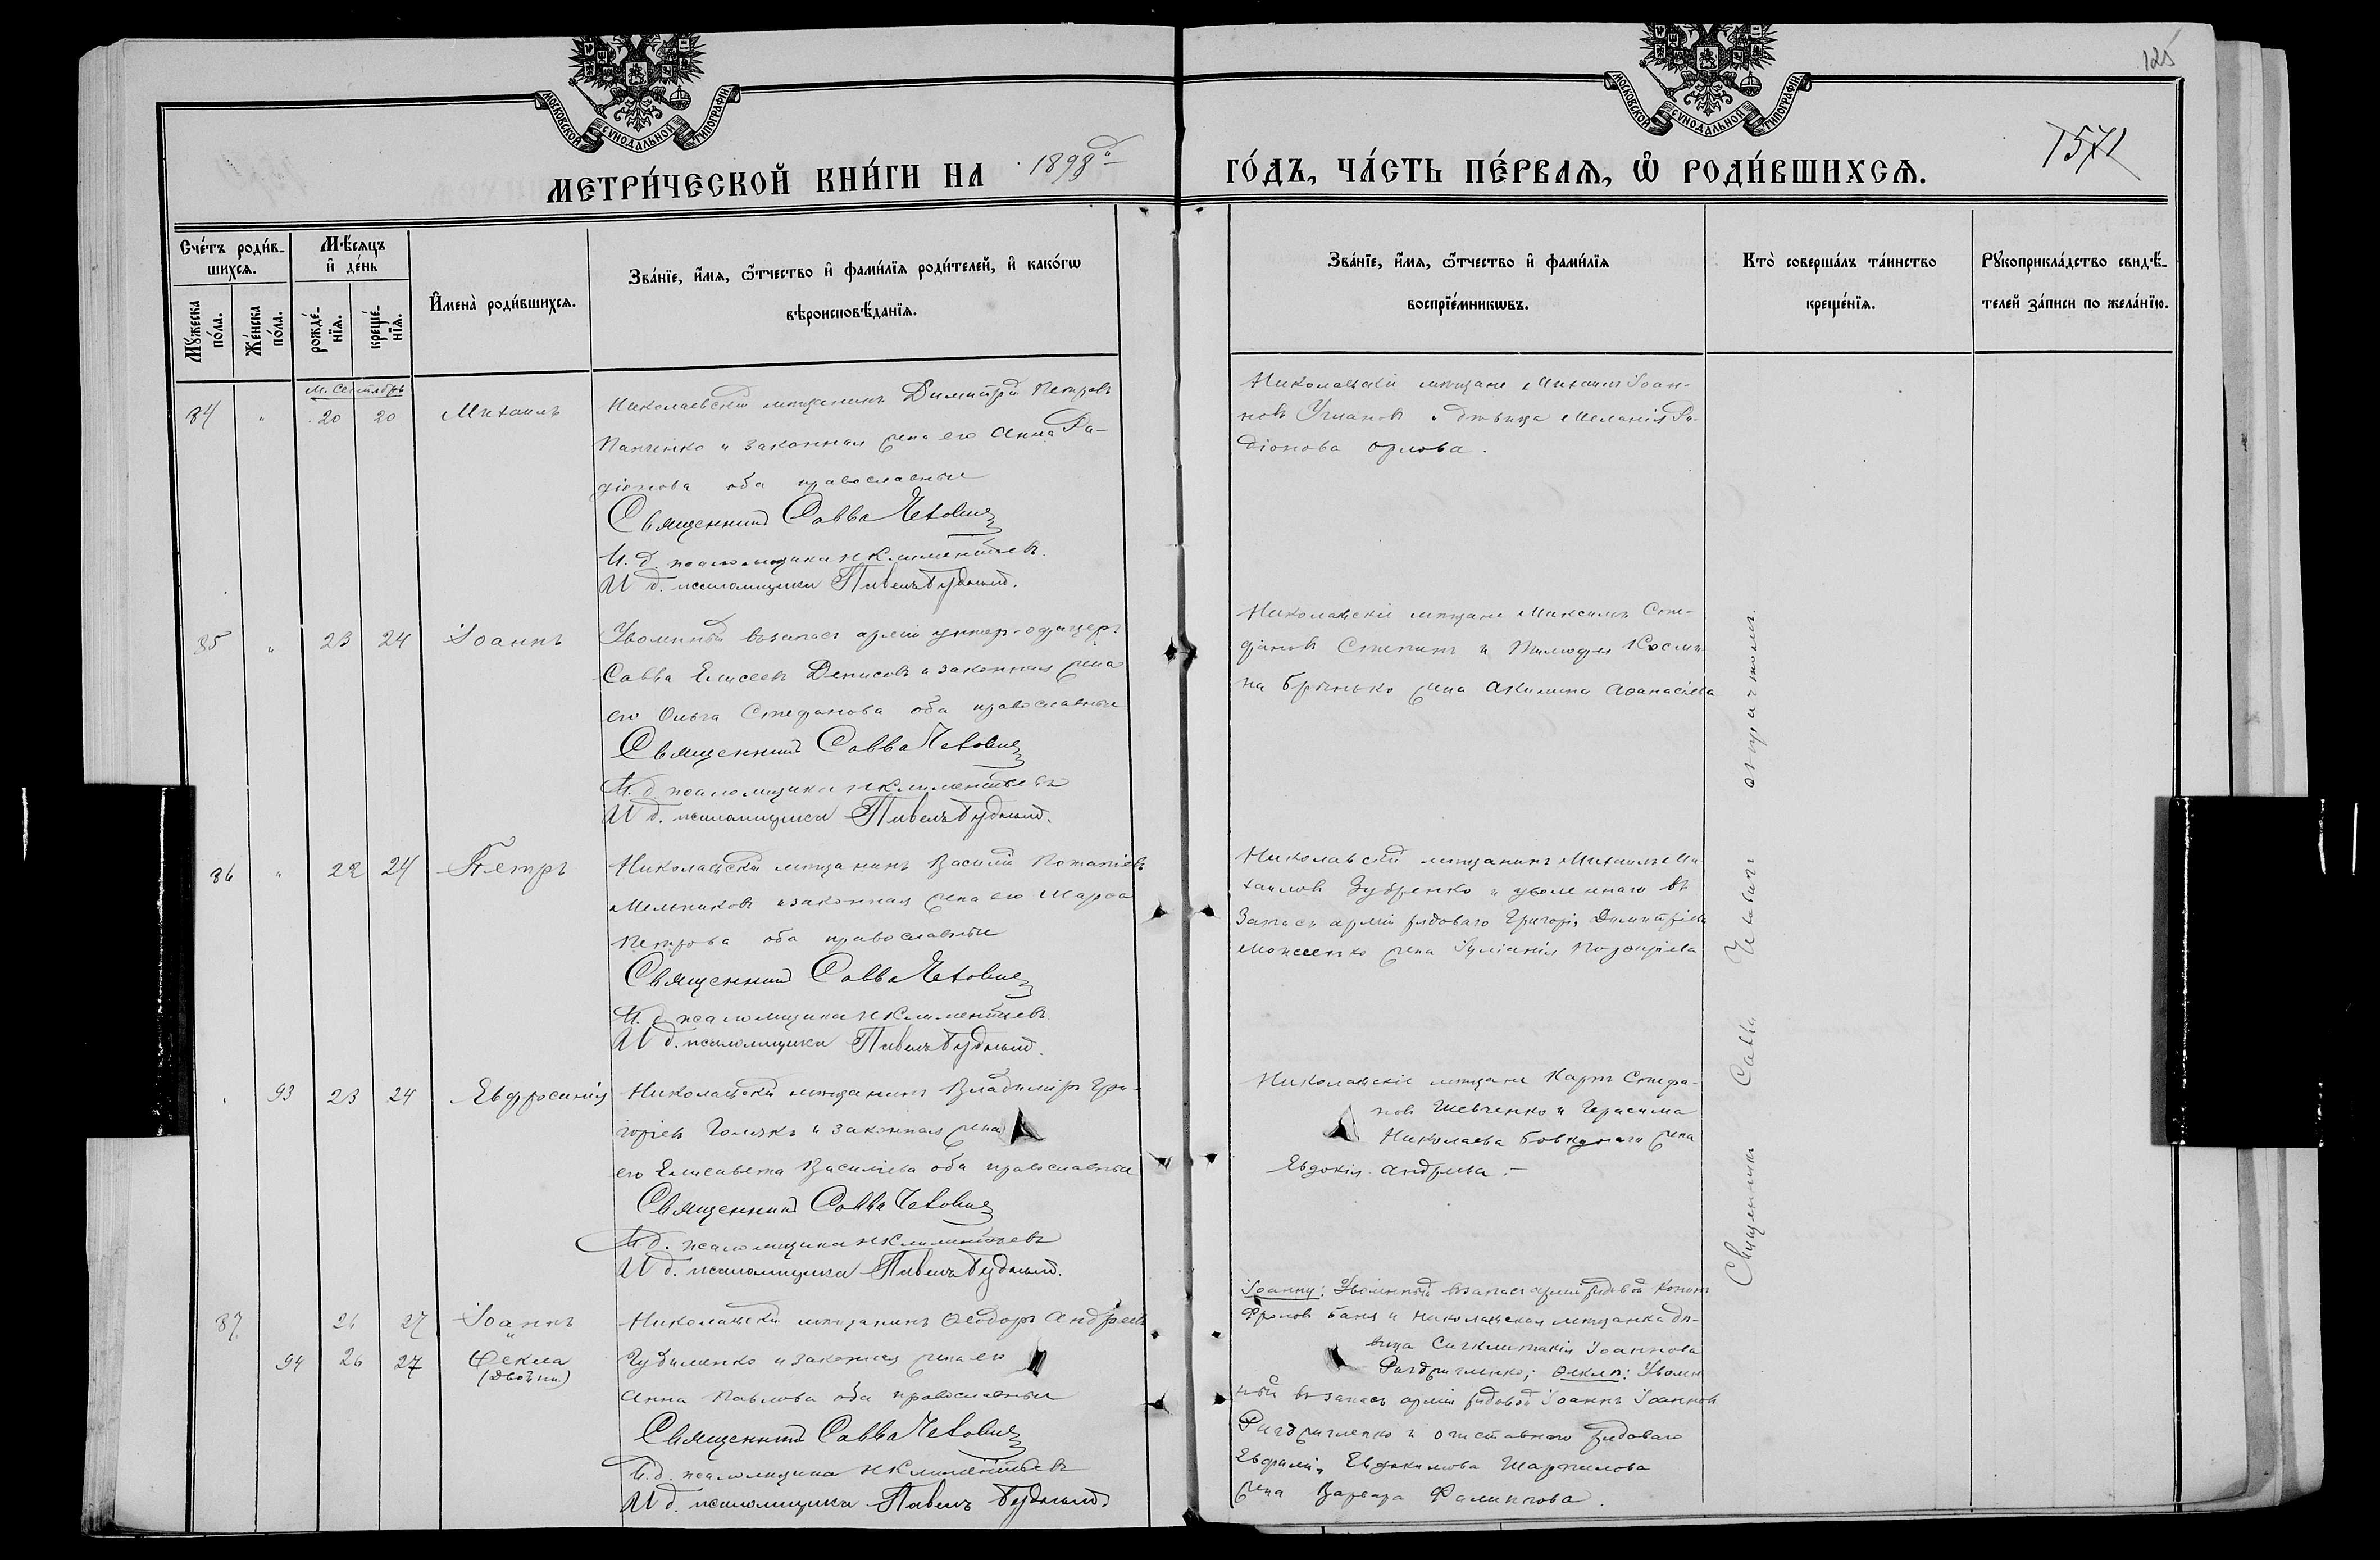 125
МОСКОВСКОЙ СѴНОДАЛЬНОЙ ТИПОГРАФІИ.
МОСКОВСКОЙ СѴНОДАЛЬНОЙ ТИПОГРАФІИ.
1571
МЕТРИ́ЧЕСКОЙ КНИ́ГИ НА 1898й
ГО́ДЪ, ЧА́СТЬ ПЕ́РВАѦ, Ѽ РОДИ́ВШИХСѦ.
Сче́тъ роди́в-
шихсѧ.
Мꙋ́жеска по́ла.
Же́нска по́ла.
Мѣ́сѧцъ
и҆ де́нь
рожде́-
нїѧ.
креще́-
нїѧ.
И҆мена̀ роди́вшихсѧ.
Зва́нїе, и҆́мѧ, ѻ҆́тчество и҆ фами́лїѧ роди́телей, и҆ како́гѡ
вѣроисповѣ́данїѧ.
Зва́нїе, и҆́мѧ, ѻ҆́тчество и҆ фами́лїѧ
воспрїе́мникѡвъ.
Кто̀ соверша́лъ та́инство
креще́нїѧ.
Рꙋкоприкла́дство свидѣ́-
телей за́писи по жела́нїю.
м. Сентябрь
84 " 20 20 Михаилъ
Николаевскій мѣщанинъ Димитрій Петровъ
Панченко и законная жена его Анна Ра-
діонова оба православные
Священникъ Савва Чехович
И. д. псаломщика Н Климентьевъ.
И д. псаломщика Павелъ Будный.
Николаевскіе мѣщане Михаилъ Іоан-
новъ и дѣвица Меланія Ра-
діонова Орлова.
85 " 23 24 Іоаннъ
Уволенный въ запасъ арміи унтер-офицеръ
Савва Елисеевъ Денисовъ и законная жена
его Ольга Стефанова оба православные
Священникъ Савва Чехович
И. д псаломщика Н Климентьевъ
И д. псаломщика Павелъ Будный.
Николаевскіе мѣщане Максимъ Сте-
фановъ Степинъ и Тимофея Косми-
на Брынько жена Акилина Аѳанасіева
86 " 22 24 Петръ
Николаевскій мѣщанинъ Василій Потапіевъ
Мельниковъ и законная жена его Марѳа
Петрова оба православные
Священникъ Савва Чехович
И. д. псаломщика Н Климентьевъ
И д. псаломщика Павелъ Будный.
Николаевскій мѣщанинъ Михаилъ Ми-
хаиловъ Зубренко и уволеннаго въ
Запасъ арміи рядоваго Григорія Димитріева
Моисеенко жена Іуліанія
93 23 24 Евфросинія
Николаевскій мѣщанинъ Владиміръ Гри-
горіевъ Голякъ и законная жена
его Елисавета Василіева оба православные
Священникъ Савва Чехович
И д. псаломщика Н Климентьевъ
И д. псаломщика Павелъ Будный.
Николаевскіе мѣщане Карпъ Стефа-
новъ Шевченко и Герасима
Николаева жена
Евдокія Андреева.
87 26 27 Іоаннъ
94 26 27 Ѳекла
(двойни)
Николаевскій мѣщанинъ Ѳеодоръ Андреевъ
Чудименко и законная жена его
Анна Павлова оба православные
Священникъ Савва Чехович
И. д. псаломщика Н Климентьевъ
И д. псаломщика Павелъ Будный.
Іоанну: Уволенный въ запасъ арміи рядовой
Фроловъ и Николаевская мѣщанка дѣ-
вица Синклитикія Іоаннова
Ѳекле: Уволен-
ный въ запасъ арміи рядовой Іоаннъ Іоанновъ
и отставнаго рядоваго
Евфимія Евдокимова Шарпилова
жена Варвара Филиппова.
Священникъ Савва Чехович